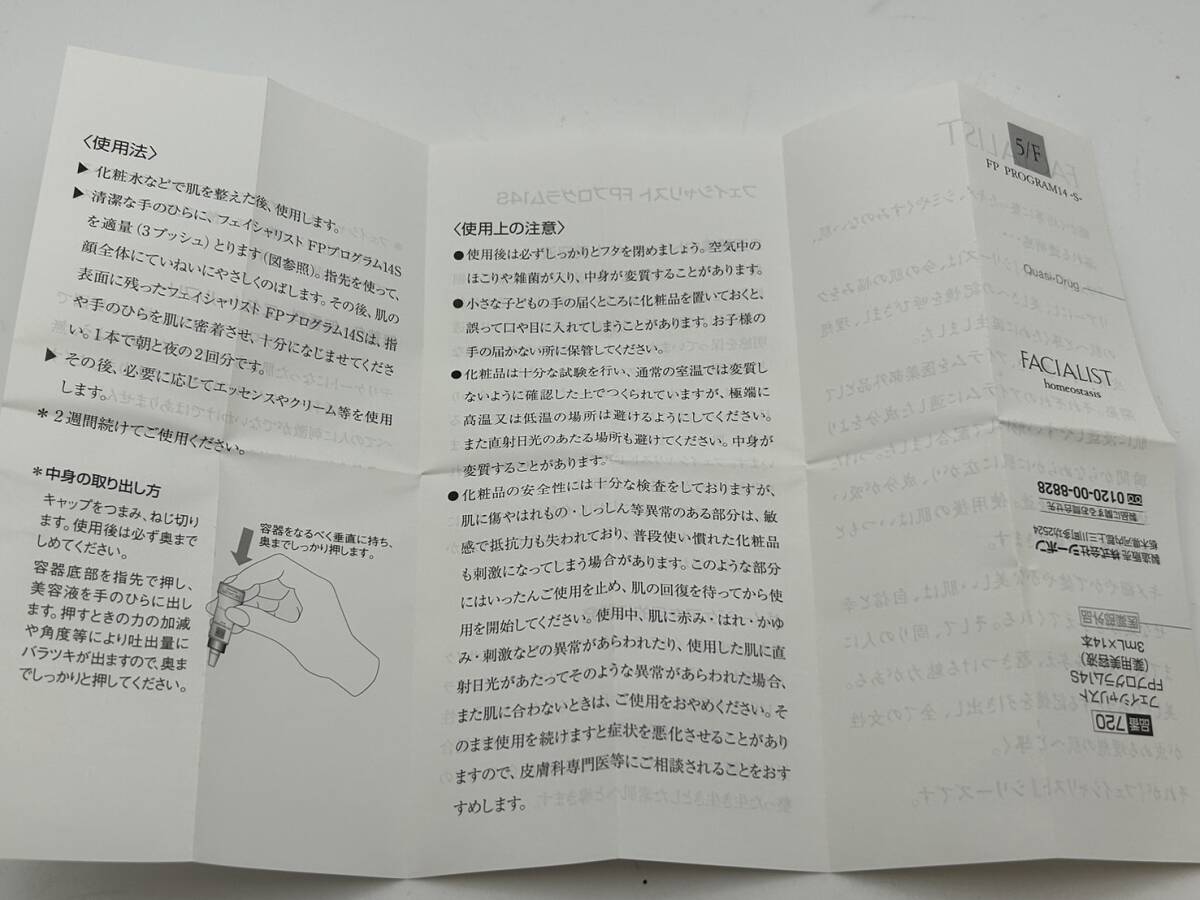 〈使用法〉
▶ 化粧水などで肌を整えた後、使用します。
▶ 清潔な手のひらに、フェイシャリスト FPプログラム14S
を適量（3プッシュ）とります（図参照）。指先を使って、
顔全体にていねいにやさしくのばします。その後、肌の
表面に残ったフェイシャリスト FPプログラム14Sは、指
や手のひらを肌に密着させ、十分になじませてくださ
い。1本で朝と夜の2回分です。
▶ その後、必要に応じてエッセンスやクリーム等を使用
します。
＊2週間続けてご使用ください。
＊中身の取り出し方
キャップをつまみ、ねじ切り
ます。使用後は必ず奥まで
しめてください。
容器底部を指先で押し、
美容液を手のひらに出し
ます。押すときの力の加減
や角度等により吐出量に
バラツキが出ますので、奥ま
でしっかりと押してください。
容器をなるべく垂直に持ち、
奥までしっかり押します。
〈使用上の注意〉
● 使用後は必ずしっかりとフタを閉めましょう。空気中の
ほこりや雑菌が入り、中身が変質することがあります。
● 小さな子どもの手の届くところに化粧品を置いておくと、
誤って口や目に入れてしまうことがあります。お子様の
手の届かない所に保管してください。
● 化粧品は十分な試験を行い、通常の室温では変質し
ないように確認した上でつくられていますが、極端に
高温又は低温の場所は避けるようにしてください。
また直射日光のあたる場所も避けてください。中身が
変質することがあります。
● 化粧品の安全性には十分な検査をしておりますが、
肌に傷やはれもの・しっしん等異常のある部分は、敏
感で抵抗力も失われており、普段使い慣れた化粧品
も刺激になってしまう場合があります。このような部分
にはいったんご使用を止め、肌の回復を待ってから使
用を開始してください。使用中、肌に赤み・はれ・かゆ
み・刺激などの異常があらわれたり、使用した肌に直
射日光があたってそのような異常があらわれた場合、
また肌に合わないときは、ご使用をおやめください。そ
のまま使用を続けますと症状を悪化させることがあり
ますので、皮膚科専門医等にご相談されることをおす
すめします。
5/F
FP PROGRAM14 -S-
Quasi-Drug
FACIALIST
homeostasis
品番 720
フェイシャリスト
FPプログラム14S
（薬用美容液）
3mL×14本
医薬部外品
製造販売元 株式会社シーボン
栃木県河内郡上三川町多功2524
製品に関するお問合せ先
0120-00-8828